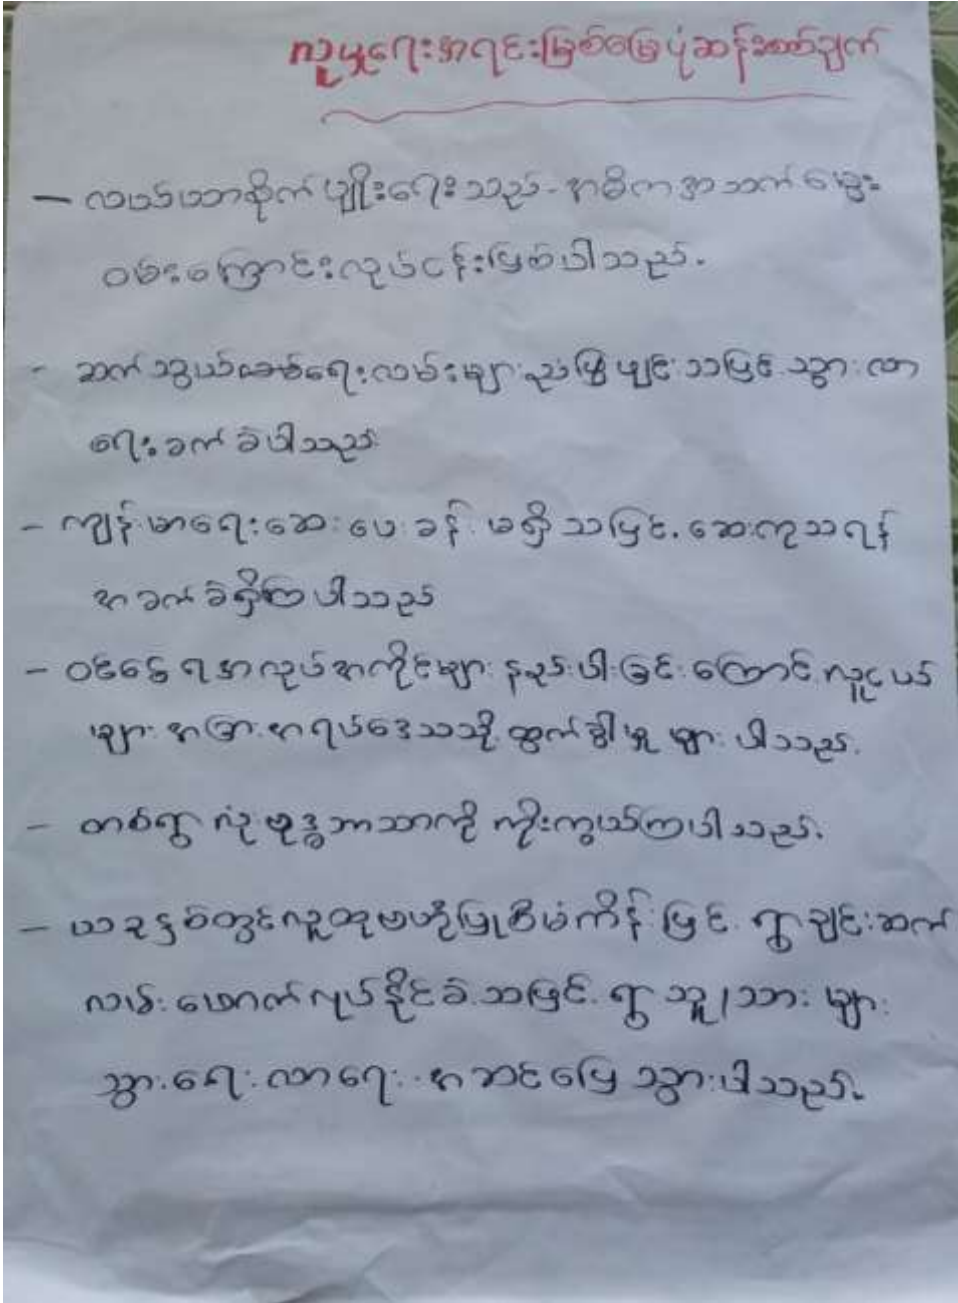 လူမှုရေးအရင်းမြစ်မြေပုံဆန်းစစ်ချက်
– လယ်ယာစိုက်ပျိုးရေးသည်-အဓိကအသက်မွေး
ဝမ်းကြောင်းလုပ်ငန်းဖြစ်ပါသည်.
- ဆက်သွယ်ရေးလမ်းများညံ့ဖြင်းသဖြင့်သွားလာ
ရေးခက်ခဲပါသည်
- ကျန်းမာရေးဆေးပေးခန်းမရှိသဖြင့်.ဆေးကုသရန်
အခက်ခဲရှိကြပါသည်
- ဝင်ငွေရအလုပ်အကိုင်များနည်းပါးခြင်းကြောင့်လူငယ်
များအခြားအရပ်ဒေသသို့ထွက်ခွါမှုများပါသည်.
- တစ်ရွာလုံးဗုဒ္ဓဘာသာကိုကိုးကွယ်ကြပါသည်.
- ယခုနှစ်တွင်လူထုဗဟိုပြုစီမံကိန်းဖြင့်ရွာချင်းဆက်
လမ်းဖောက်လုပ်နိုင်ခဲ့သဖြင့်ရွာသူ/သားများ
သွားရေးလာရေးအဆင်ပြေသွားပါသည်.